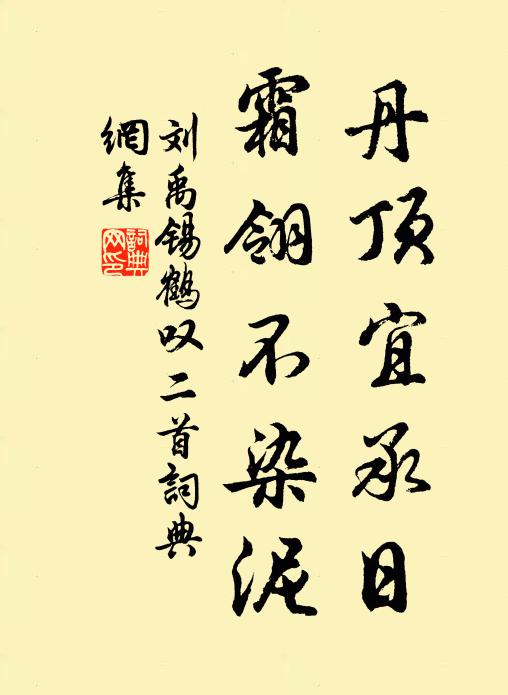 丹顶宜承日
霜翎不染泥
刘禹锡鹤叹二首詞典
網集
詞典
网印